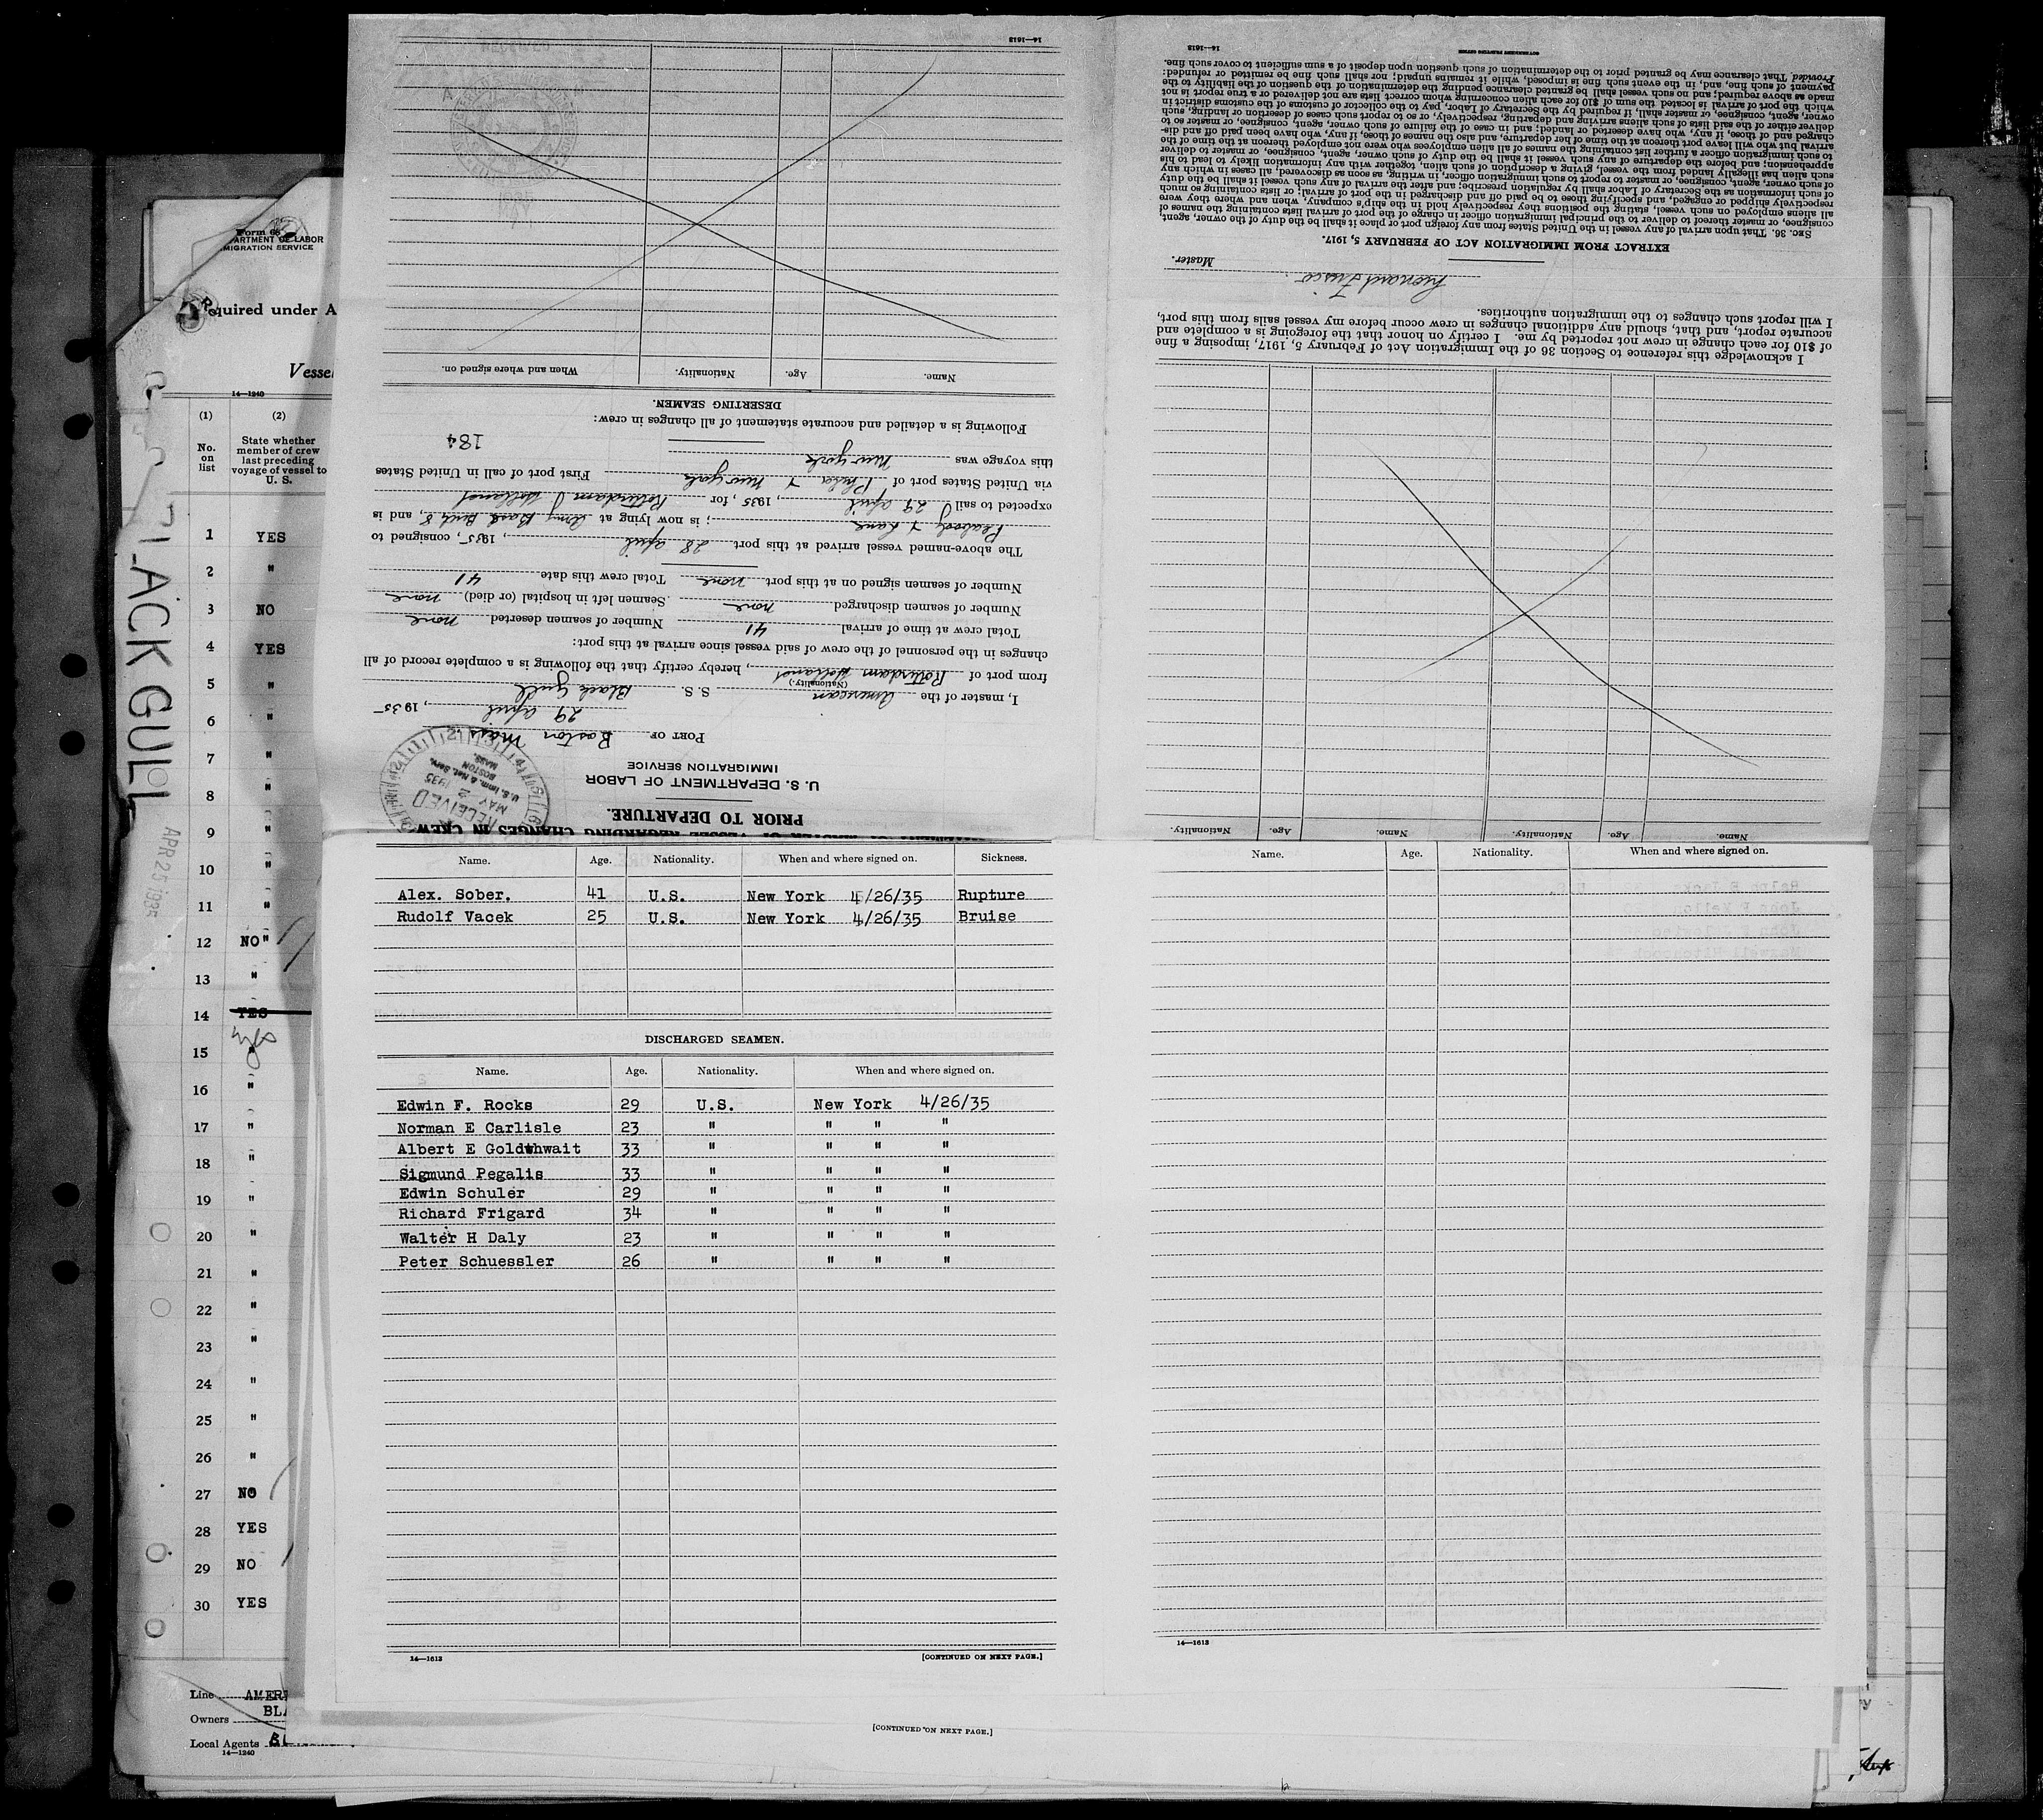 Form 68
DEPARTMENT OF LABOR
IMMIGRATION SERVICE
Required under A
Vessel
14—1240
(1) (2)
No. on list
State whether member of crew last preceding voyage of vessel to U. S.
1 YES
2 "
3 NO
4 YES
5 "
6 "
7 "
8 "
9 "
10 "
11 "
12 NO "
13 "
14 YES
yes
15 "
16 "
17 "
18 "
19 "
20 "
21 "
22 "
23 "
24 "
25 "
26 "
27 NO
28 YES
29 NO
30 YES
Line AMERI
Owners BLA
Local Agents BL
14—1240
BLACK GULL
APR 25 1935
PRIOR TO DEPARTURE.
U. S. DEPARTMENT OF LABOR
IMMIGRATION SERVICE
RECEIVED
MAY 2 1935
U.S. Imm. & Nat. Serv.
BOSTON
MASS.
PORT OF Boston Mass.
29 April, 1935
I, master of the American S. S. Black Gull
(Nationality.)
from port of Rotterdam Holland, hereby certify that the following is a complete record of all
changes in the personnel of the crew of said vessel since arrival at this port:
Total crew at time of arrival 41 Number of seamen deserted none
Number of seamen discharged none Seamen left in hospital (or died) none
Number of seamen signed on at this port none Total crew this date 41
The above-named vessel arrived at this port 28 April, 1935, consigned to
Peabody & Lane; is now lying at Army Base Berth 8, and is
expected to sail 29 April, 1935, for Rotterdam Holland
via United States port of Phila & New York First port of call in United States
this voyage was New York
184
Following is a detailed and accurate statement of all changes in crew:
DESERTING SEAMEN.
Name. Age. Nationality. When and where signed on.
14—1613
Name. Age. Nationality. When and where signed on. Sickness.
Alex. Sober. 41 U.S. New York 4/26/35 Rupture
Rudolf Vacek 25 U.S. New York 4/26/35 Bruise
DISCHARGED SEAMEN.
Name. Age. Nationality. When and where signed on.
Edwin F. Rocks 29 U.S. New York 4/26/35
Norman E Carlisle 23 " " " "
Albert E Goldthwait 33 " " " "
Sigmund Pegalis 33 " " " "
Edwin Schuler 29 " " " "
Richard Frigard 34 " " " "
Walter H Daly 23 " " " "
Peter Schuessler 26 " " " "
14—1613
[CONTINUED ON NEXT PAGE.]
[CONTINUED ON NEXT PAGE.]
Name. Age. Nationality. Name. Age. Nationality.
I acknowledge this reference to Section 36 of the Immigration Act of February 5, 1917, imposing a fine
of $10 for each change in crew not reported by me. I certify on honor that the foregoing is a complete and
accurate report, and that, should any additional changes in crew occur before my vessel sails from this port,
I will report such changes to the immigration authorities.
Master.
EXTRACT FROM IMMIGRATION ACT OF FEBRUARY 5, 1917.
SEC. 36. That upon arrival of any vessel in the United States from any foreign port or place it shall be the duty of the owner, agent,
consignee, or master thereof to deliver to the principal immigration officer in charge of the port of arrival lists containing the names of
all aliens employed on such vessel, stating the positions they respectively hold in the ship's company, when and where they were
respectively shipped or engaged, and specifying those to be paid off and discharged in the port of arrival; or lists containing so much
of such information as the Secretary of Labor shall by regulation prescribe; and after the arrival of any such vessel it shall be the duty
of such owner, agent, consignee, or master to report to such immigration officer, in writing, as soon as discovered, all cases in which any
such alien has illegally landed from the vessel, giving a description of such alien, together with any information likely to lead to his
apprehension; and before the departure of any such vessel it shall be the duty of such owner, agent, consignee, or master to deliver
to such immigration officer a further list containing the names of all alien employees who were not employed thereon at the time of the
arrival but who will leave port thereon at the time of her departure, and also the names of those, if any, who have been paid off and dis-
charged and of those, if any, who have deserted or landed; and in case of the failure of such owner, agent, consignee, or master so to
deliver either of the said lists of such aliens arriving and departing, respectively, or so to report such cases of desertion or landing, such
owner, agent, consignee, or master shall, if required by the Secretary of Labor, pay to the collector of customs of the customs district in
which the port of arrival is located the sum of $10 for each alien concerning whom correct lists are not delivered or a true report is not
made as above required; and no such vessel shall be granted clearance pending the determination of the question of the liability to the
payment of such fine, and, in the event such fine is imposed, while it remains unpaid; nor shall such fine be remitted or refunded:
Provided, That clearance may be granted prior to the determination of such question upon deposit of a sum sufficient to cover such fine.
14—1613
Name. Age. Nationality. When and where signed on.
14—1613